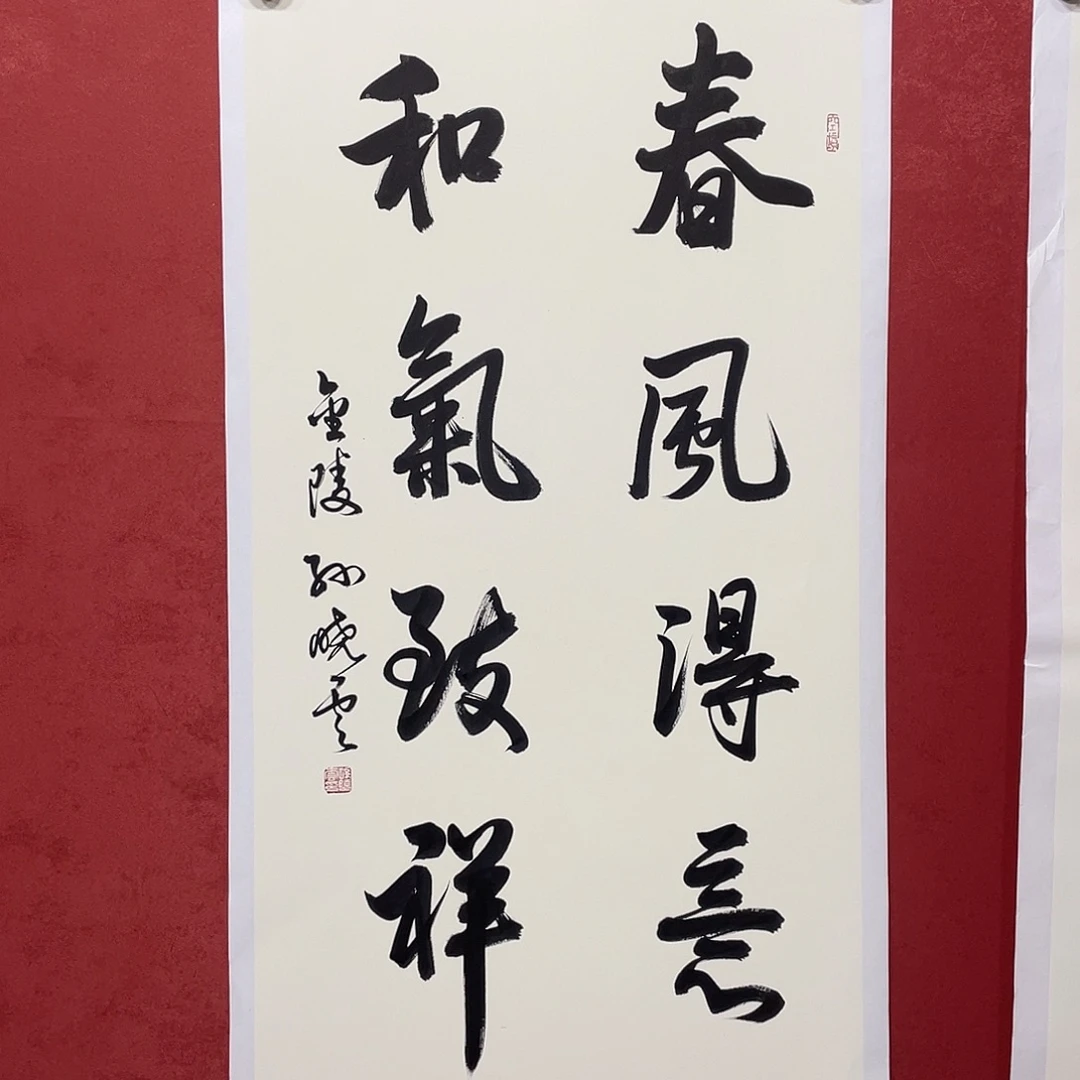 春風得意
和氣致祥
金陵孙晓云